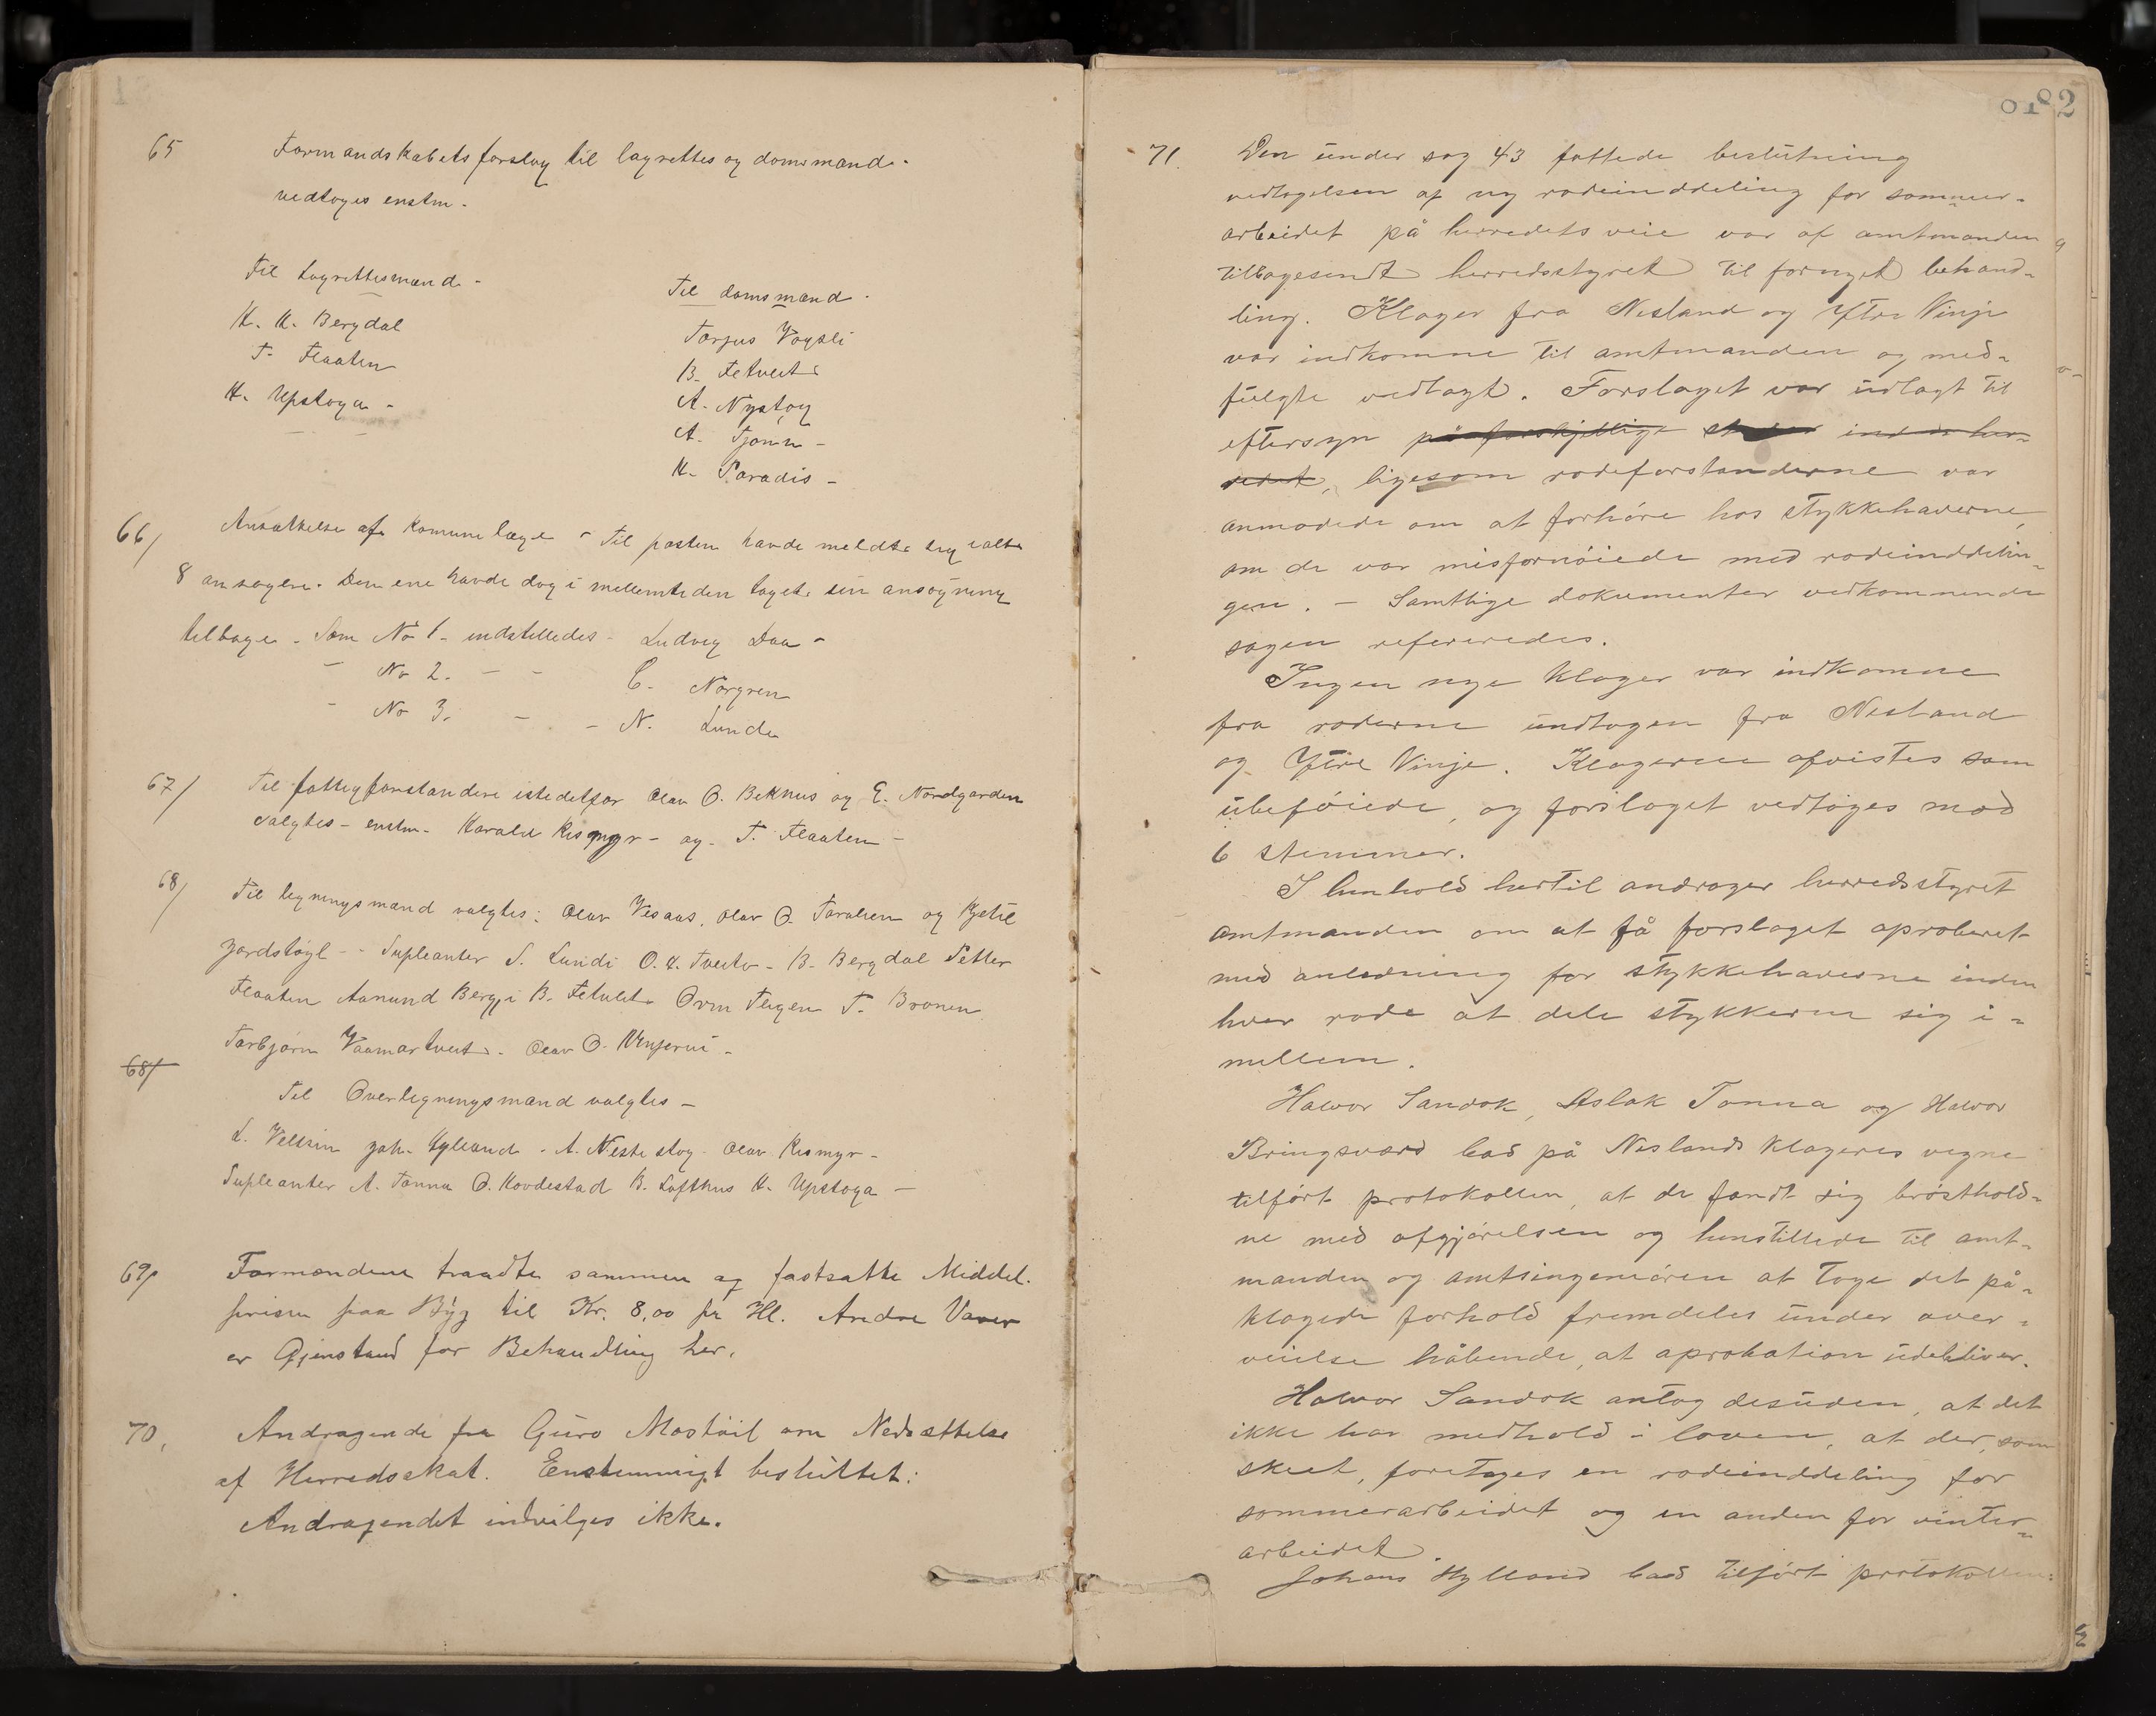 65 Formandskabets forslag til lagrettes og domsmænd
vedtoges enstm.
Til Lagrettesmænd
K. K. Bergdal
T. Flaaten
H. Upstoga
Til domsmænd
Torjus Vågsli
B. Fetveit
A. Nystog
A. Tjønn
H. Paradis
66/ Ansættelse af Komunelæge - Til posten havde meldt sig ialt
8 ansøgere. Den ene havde dog i mellemtiden taget sin ansøgning
tilbage - Som No 1 - indstilledes - Ludvig Daa -
- No 2. - - C. Norgren
- No 3. - - N. Lunde
67/ Til fattigforstandere istedetfor Olav O. Bekhus og E. Nordgarden
valgtes - enstm - Harald Rismyr - og - T. Flaaten -
68/ Til ligningsmænd valgtes: Olav Vesaas, Olav O. og Kjetil
Supleanter S. Lundi O. Tveito - B. Bergdal Petter
Flaaten Aanund Berge B. Fetveit Orm T.
Torbjørn Vaamartveit - Olav O.
68/
Til Overligningsmænd valgtes -
L. Joh. Hylland - A. Nestestog - Olav Rismyr -
Supleanter A. Tonna O. Hovdestad B. Lofthus H. Upstoga -
69/ Formændene traadte sammen og fastsatte Middel-
prisen paa Byg til Kr. 8,00 pr Hl. Andre Varer
er Gjenstand for Behandling her.
70, Andragende fra Guro Mostøil om Nedsættelse
af Herredsskat. Enstemmigt besluttet:
Andragendet indvilges ikke.
82
71. Den under sag 43 fattede beslutning
vedtagelsen af ny rodeinddeling for sommer-
arbeidet på herredets veie var af amtmanden
tilbagesendt herredsstyret til fornyet behand-
ling. Klager fra Nesland og Yttre Vinje
var indkomne til amtmanden og med-
fulgte vedlagt. Forslaget var udlagt til
eftersyn på forskjellige steder inden her-
redet, ligesom rodeforstanderne var
anmodede om at forhøre hos stykkehaverne,
om de var misfornøiede med rodeinddelin-
gen. - Samtlige dokumenter vedkommende
sagen refereredes.
Ingen nye klager var indkomne
fra roderne undtagen fra Nesland
og Yttre Vinje. Klagerne afvistes som
ubeføiede, og forslaget vedtoges mod
6 stemmer.
I henhold hertil andrager herredsstyret
amtmanden om at få forslaget aproberet
med anledning for stykkehaverne inden
hver rode at dele stykkerne sig i-
mellem.
Halvor Sandok, Aslak Tonna og Halvor
Bringsværd bad på Neslands klageres vegne
tilført protokollen, at de fandt sig brøsthold-
ne med afgjørelsen og henstillede til amt-
manden og amtsingeniøren at tage det på-
klagede forhold fremdeles under over-
veielse håbende, at aprobation udebliver.
Halvor Sandok antog desuden, at det
ikke har medhold i loven, at der, som
skeet, foretages en rodeinddeling for
sommerarbeidet og en anden for vinter-
arbeidet.
Johans Hylland bad tilført protokollen: